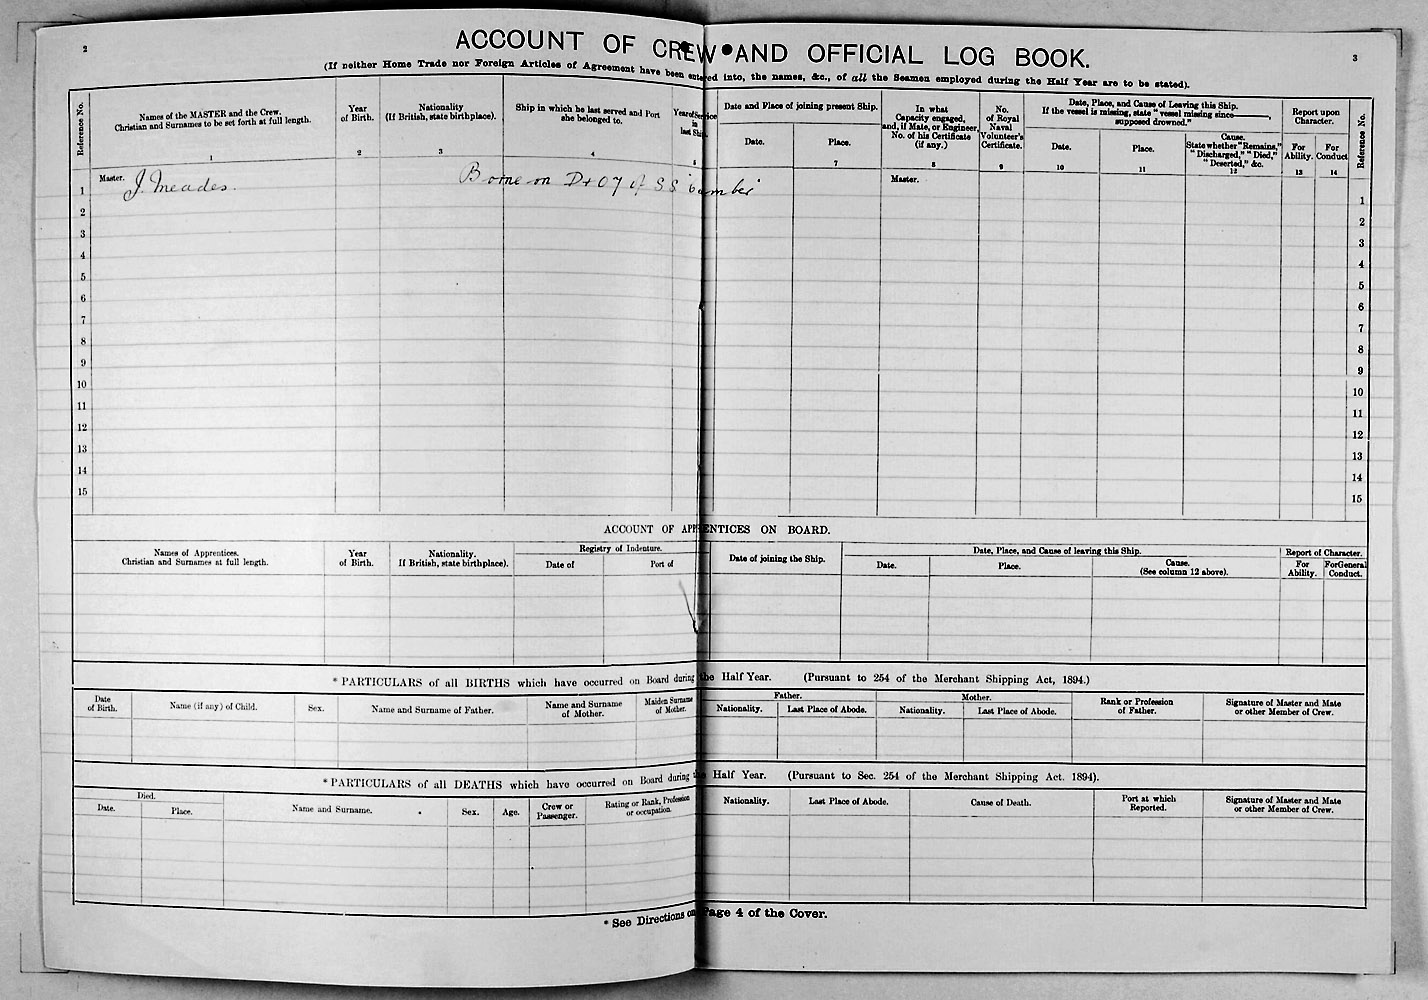 2
ACCOUNT OF CREW AND OFFICIAL LOG BOOK.
3
(If neither Home Trade nor Foreign Articles of Agreement have been entered into, the names, &c., of all the Seamen employed during the Half Year are to be stated).
Reference No.
Names of the MASTER and the Crew.
Christian and Surnames to be set forth at full length.
1
Year
of Birth.
2
Nationality
(If British, state birthplace).
3
Ship in which he last served and Port
she belonged to.
4
Year of Service
in
last Ship
5
Date and Place of joining present Ship.
Date.
Place.
7
In what
Capacity engaged,
and, if Mate, or Engineer,
No. of his Certificate
(if any.)
8
No.
of Royal
Naval
Volunteer's
Certificate.
9
Date, Place, and Cause of Leaving this Ship.
If the vessel is missing, state "vessel missing since———,
supposed drowned."
Date.
10
Place.
11
Cause.
State whether "Remains,"
"Discharged," "Died,"
"Deserted," &c.
12
Report upon
Character.
For
Ability.
13
For
Conduct
14
Reference No.
1 Master. J. Meades. Borne on D+07 of SS Master. 1
2 2
3 3
4 4
5 5
6 6
7 7
8 8
9 9
10 10
11 11
12 12
13 13
14 14
15 15
ACCOUNT OF APPRENTICES ON BOARD.
Names of Apprentices.
Christian and Surnames at full length.
Year
of Birth.
Nationality.
If British, state birthplace).
Registry of Indenture.
Date of
Port of
Date of joining the Ship.
Date, Place, and Cause of leaving this Ship.
Date.
Place.
Cause.
(See column 12 above).
Report of Character.
For
Ability.
For General
Conduct.
* PARTICULARS of all BIRTHS which have occurred on Board during the Half Year. (Pursuant to 254 of the Merchant Shipping Act, 1894.)
Date
of Birth.
Name (if any) of Child.
Sex.
Name and Surname of Father.
Name and Surname
of Mother.
Maiden Surname
of Mother.
Father.
Nationality.
Last Place of Abode.
Mother.
Nationality.
Last Place of Abode.
Rank or Profession
of Father.
Signature of Master and Mate
or other Member of Crew.
* PARTICULARS of all DEATHS which have occurred on Board during the Half Year. (Pursuant to Sec. 254 of the Merchant Shipping Act. 1894).
Died.
Date.
Place.
Name and Surname.
Sex.
Age.
Crew or
Passenger.
Rating or Rank, Profession
or occupation.
Nationality.
Last Place of Abode.
Cause of Death.
Port at which
Reported.
Signature of Master and Mate
or other Member of Crew.
* See Directions on Page 4 of the Cover.